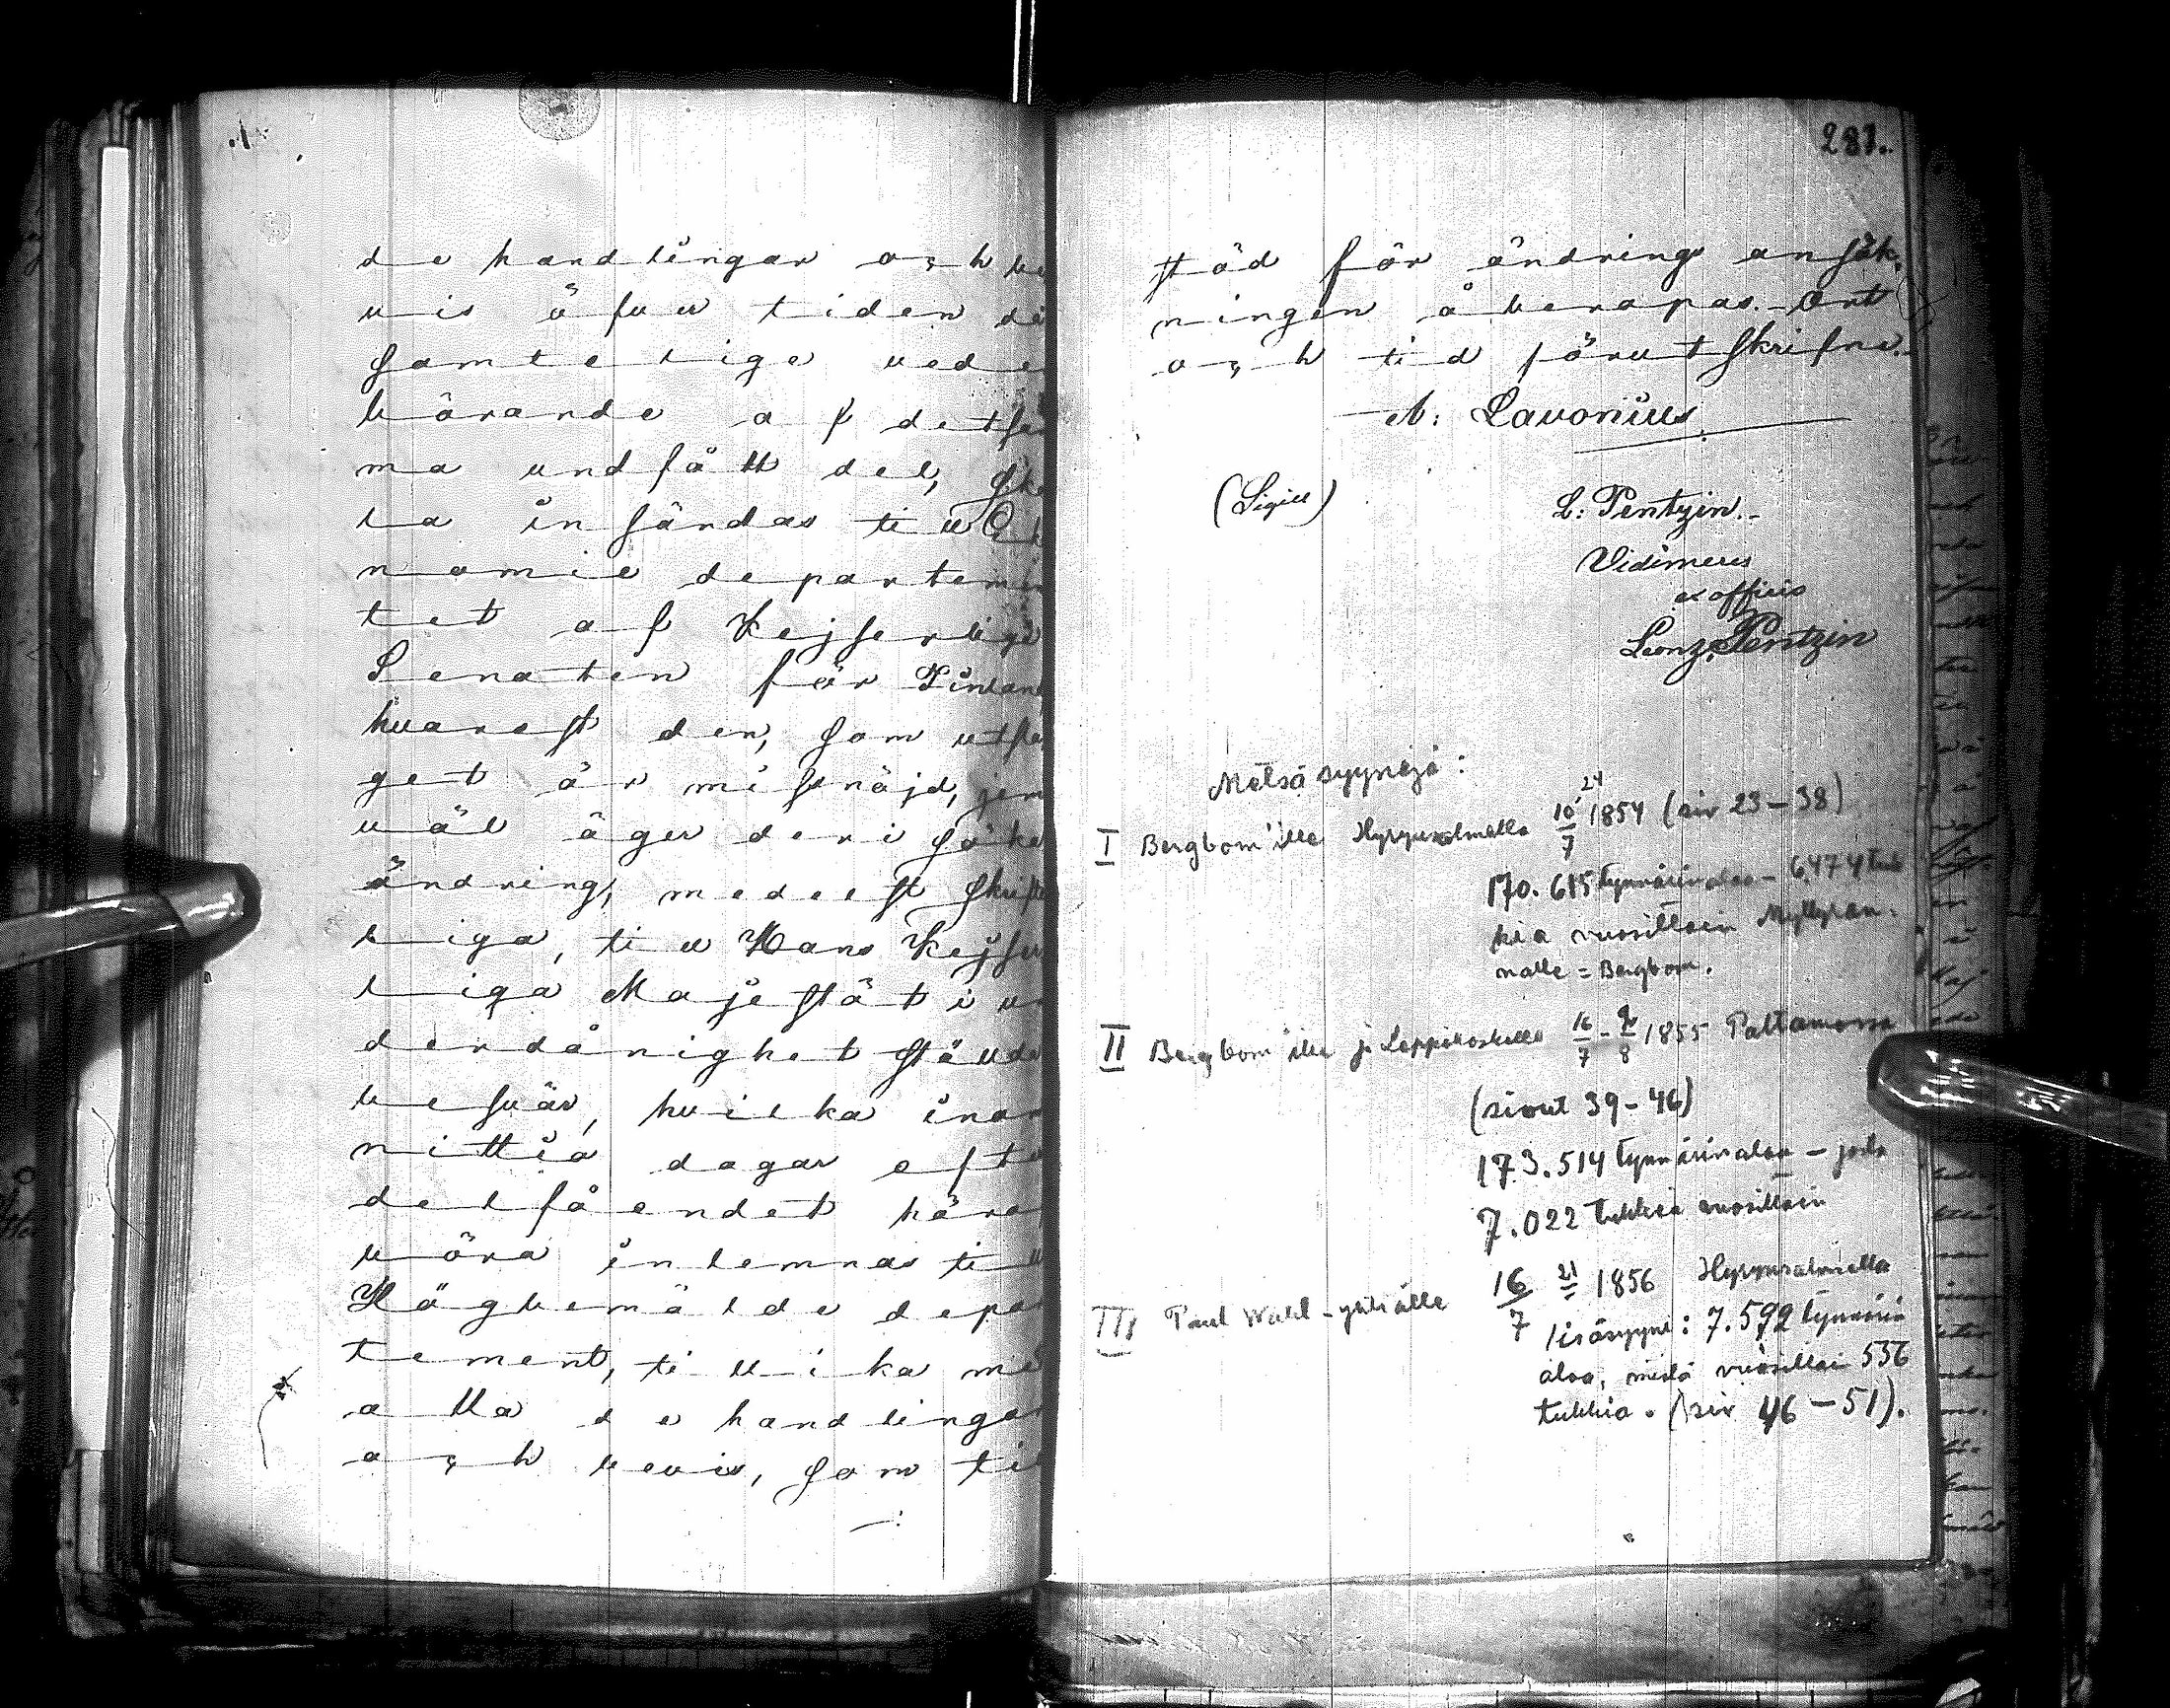 de handlingar och be
vis öfver tiden då
samtelige veder
börande af detsam
ma undfått del, sko
la insändas till Eko
nomie departemen
tet af Kejserliga
Senaten för Finland
hvarest den, som utsla
get är missnöjd, jem
väl äger deri söka
ändring, medelst skrift
liga, till Hans Kejser
liga Majestät i un
derdånighet ställde
besvär, hvilka inom
nittio dagar efter
delfåendet häraf
böra inlemnas till
Högbemälde depar
tement, tillika med
alla de handlingar
och bevis, som till
281.
stöd för ändrings ansök
ningen åberopas. Ort
och tid förutskrifne.
A: Lavonius.
(Sigill)
L: Pentzin.
Vidimeras
ex officio
Pentzin
Metsäsyynejä:
I Bergbom'ille Hyrynsalmella 10/7 24 1854 (siv 23-38)
170.615 tynnärinalaa - 6.474 tuk
kia vuosittain Myllyran
nalle = Bergbom.
II Bergbom'ille ja Leppikoskelle 16/7 - 9/8 1855 Paltamossa
(sivut 39-46)
173.514 tynnärinalaa - josta
7.022 tukkia vuosittain
III Paul Wahl-yhtiölle 16/7 21 1856 Hyrynsalmella
lisäsyyni: 7.592 tynnärin
alaa, mistä vuosittain 536
tukkia. (siv 46-51).